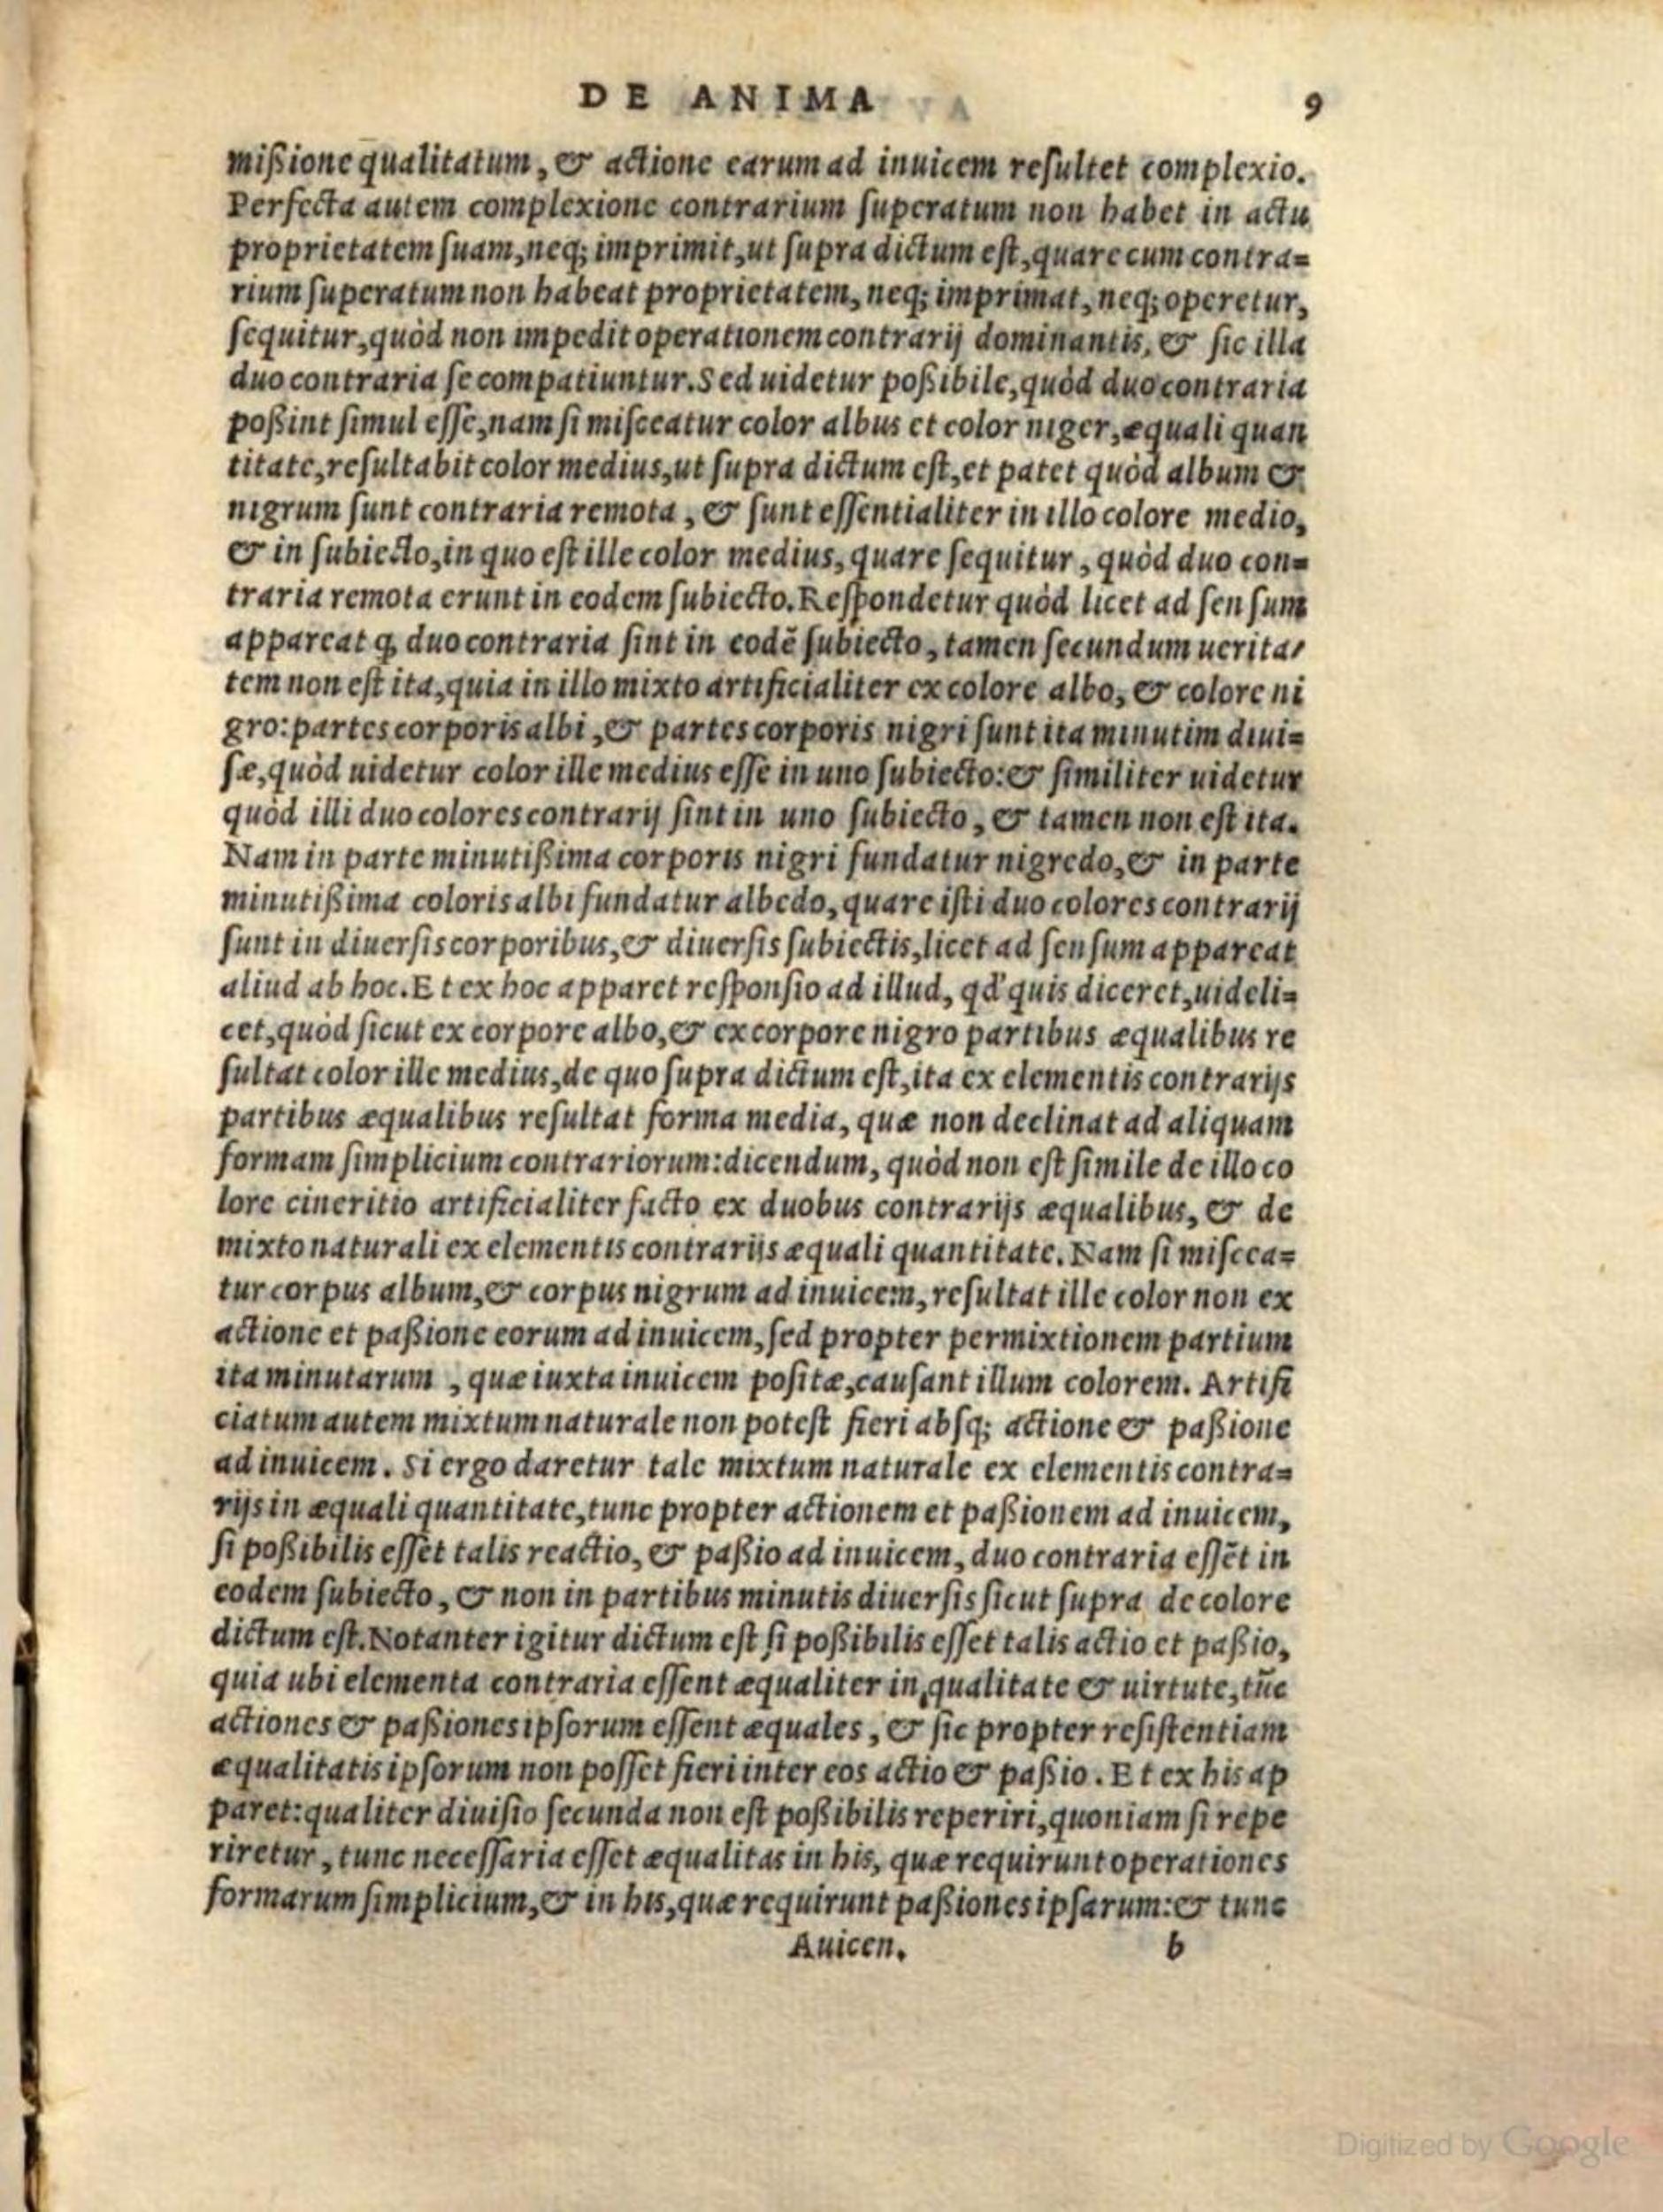 DE ANIMA 9
mißione qualitatum, & actione earum ad inuicem reſultet complexio.
Perfecta autem complexione contrarium ſuperatum non habet in actu
proprietatem ſuam, neq; imprimit, ut ſupra dictum eſt, quare cum contra=
rium ſuperatum non habeat proprietatem, neq; imprimat, neq; operetur,
ſequitur, quòd non impedit operationem contrarij dominantis, & ſic illa
duo contraria ſe compatiuntur. Sed uidetur poßibile, quòd duo contraria
poßint ſimul eſſe, nam ſi miſceatur color albus et color niger, æquali quan
titate, reſultabit color medius, ut ſupra dictum eſt, et patet quòd album &
nigrum ſunt contraria remota, & ſunt eſſentialiter in illo colore medio,
& in ſubiecto, in quo eſt ille color medius, quare ſequitur, quòd duo con=
traria remota erunt in eodem ſubiecto. Reſpondetur quòd licet ad ſenſum
appareat ꝙ duo contraria ſint in eodē ſubiecto, tamen ſecundum uerita/
tem non eſt ita, quia in illo mixto artificialiter ex colore albo, & colore ni
gro: partes corporis albi, & partes corporis nigri ſunt ita minutim diui=
ſæ, quòd uidetur color ille medius eſſe in uno ſubiecto: & ſimiliter uidetur
quòd illi duo colores contrarij ſint in uno ſubiecto, & tamen non eſt ita.
Nam in parte minutißima corporis nigri fundatur nigredo, & in parte
minutißima coloris albi fundatur albedo, quare iſti duo colores contrarij
ſunt in diuerſis corporibus, & diuerſis ſubiectis, licet ad ſenſum appareat
aliud ab hoc. Et ex hoc apparet reſponſio ad illud, qd' quis diceret, uideli=
cet, quòd ſicut ex corpore albo, & ex corpore nigro partibus æqualibus re
ſultat color ille medius, de quo ſupra dictum eſt, ita ex elementis contrarijs
partibus æqualibus reſultat forma media, quæ non declinat ad aliquam
formam ſimplicium contrariorum: dicendum, quòd non eſt ſimile de illo co
lore cineritio artificialiter facto ex duobus contrarijs æqualibus, & de
mixto naturali ex elementis contrarijs æquali quantitate. Nam ſi miſcea=
tur corpus album, & corpus nigrum ad inuicem, reſultat ille color non ex
actione et paßione eorum ad inuicem, ſed propter permixtionem partium
ita minutarum, quæ iuxta inuicem poſitæ, cauſant illum colorem. Artifi
ciatum autem mixtum naturale non poteſt fieri abſq; actione & paßione
ad inuicem. Si ergo daretur tale mixtum naturale ex elementis contra=
rijs in æquali quantitate, tunc propter actionem et paßionem ad inuicem,
ſi poßibilis eſſet talis reactio, & paßio ad inuicem, duo contraria eſſēt in
eodem ſubiecto, & non in partibus minutis diuerſis ſicut ſupra de colore
dictum eſt. Notanter igitur dictum eſt ſi poßibilis eſſet talis actio et paßio,
quia ubi elementa contraria eſſent æqualiter in qualitate & uirtute, tūc
actiones & paßiones ipſorum eſſent æquales, & ſic propter reſiſtentiam
æqualitatis ipſorum non poſſet fieri inter eos actio & paßio. Et ex his ap
paret: qualiter diuiſio ſecunda non eſt poßibilis reperiri, quoniam ſi repe
riretur, tunc neceſſaria eſſet æqualitas in his, quæ requirunt operationes
formarum ſimplicium, & in his, quæ requirunt paßiones ipſarum: & tunc
Auicen. b
Digitized by Google